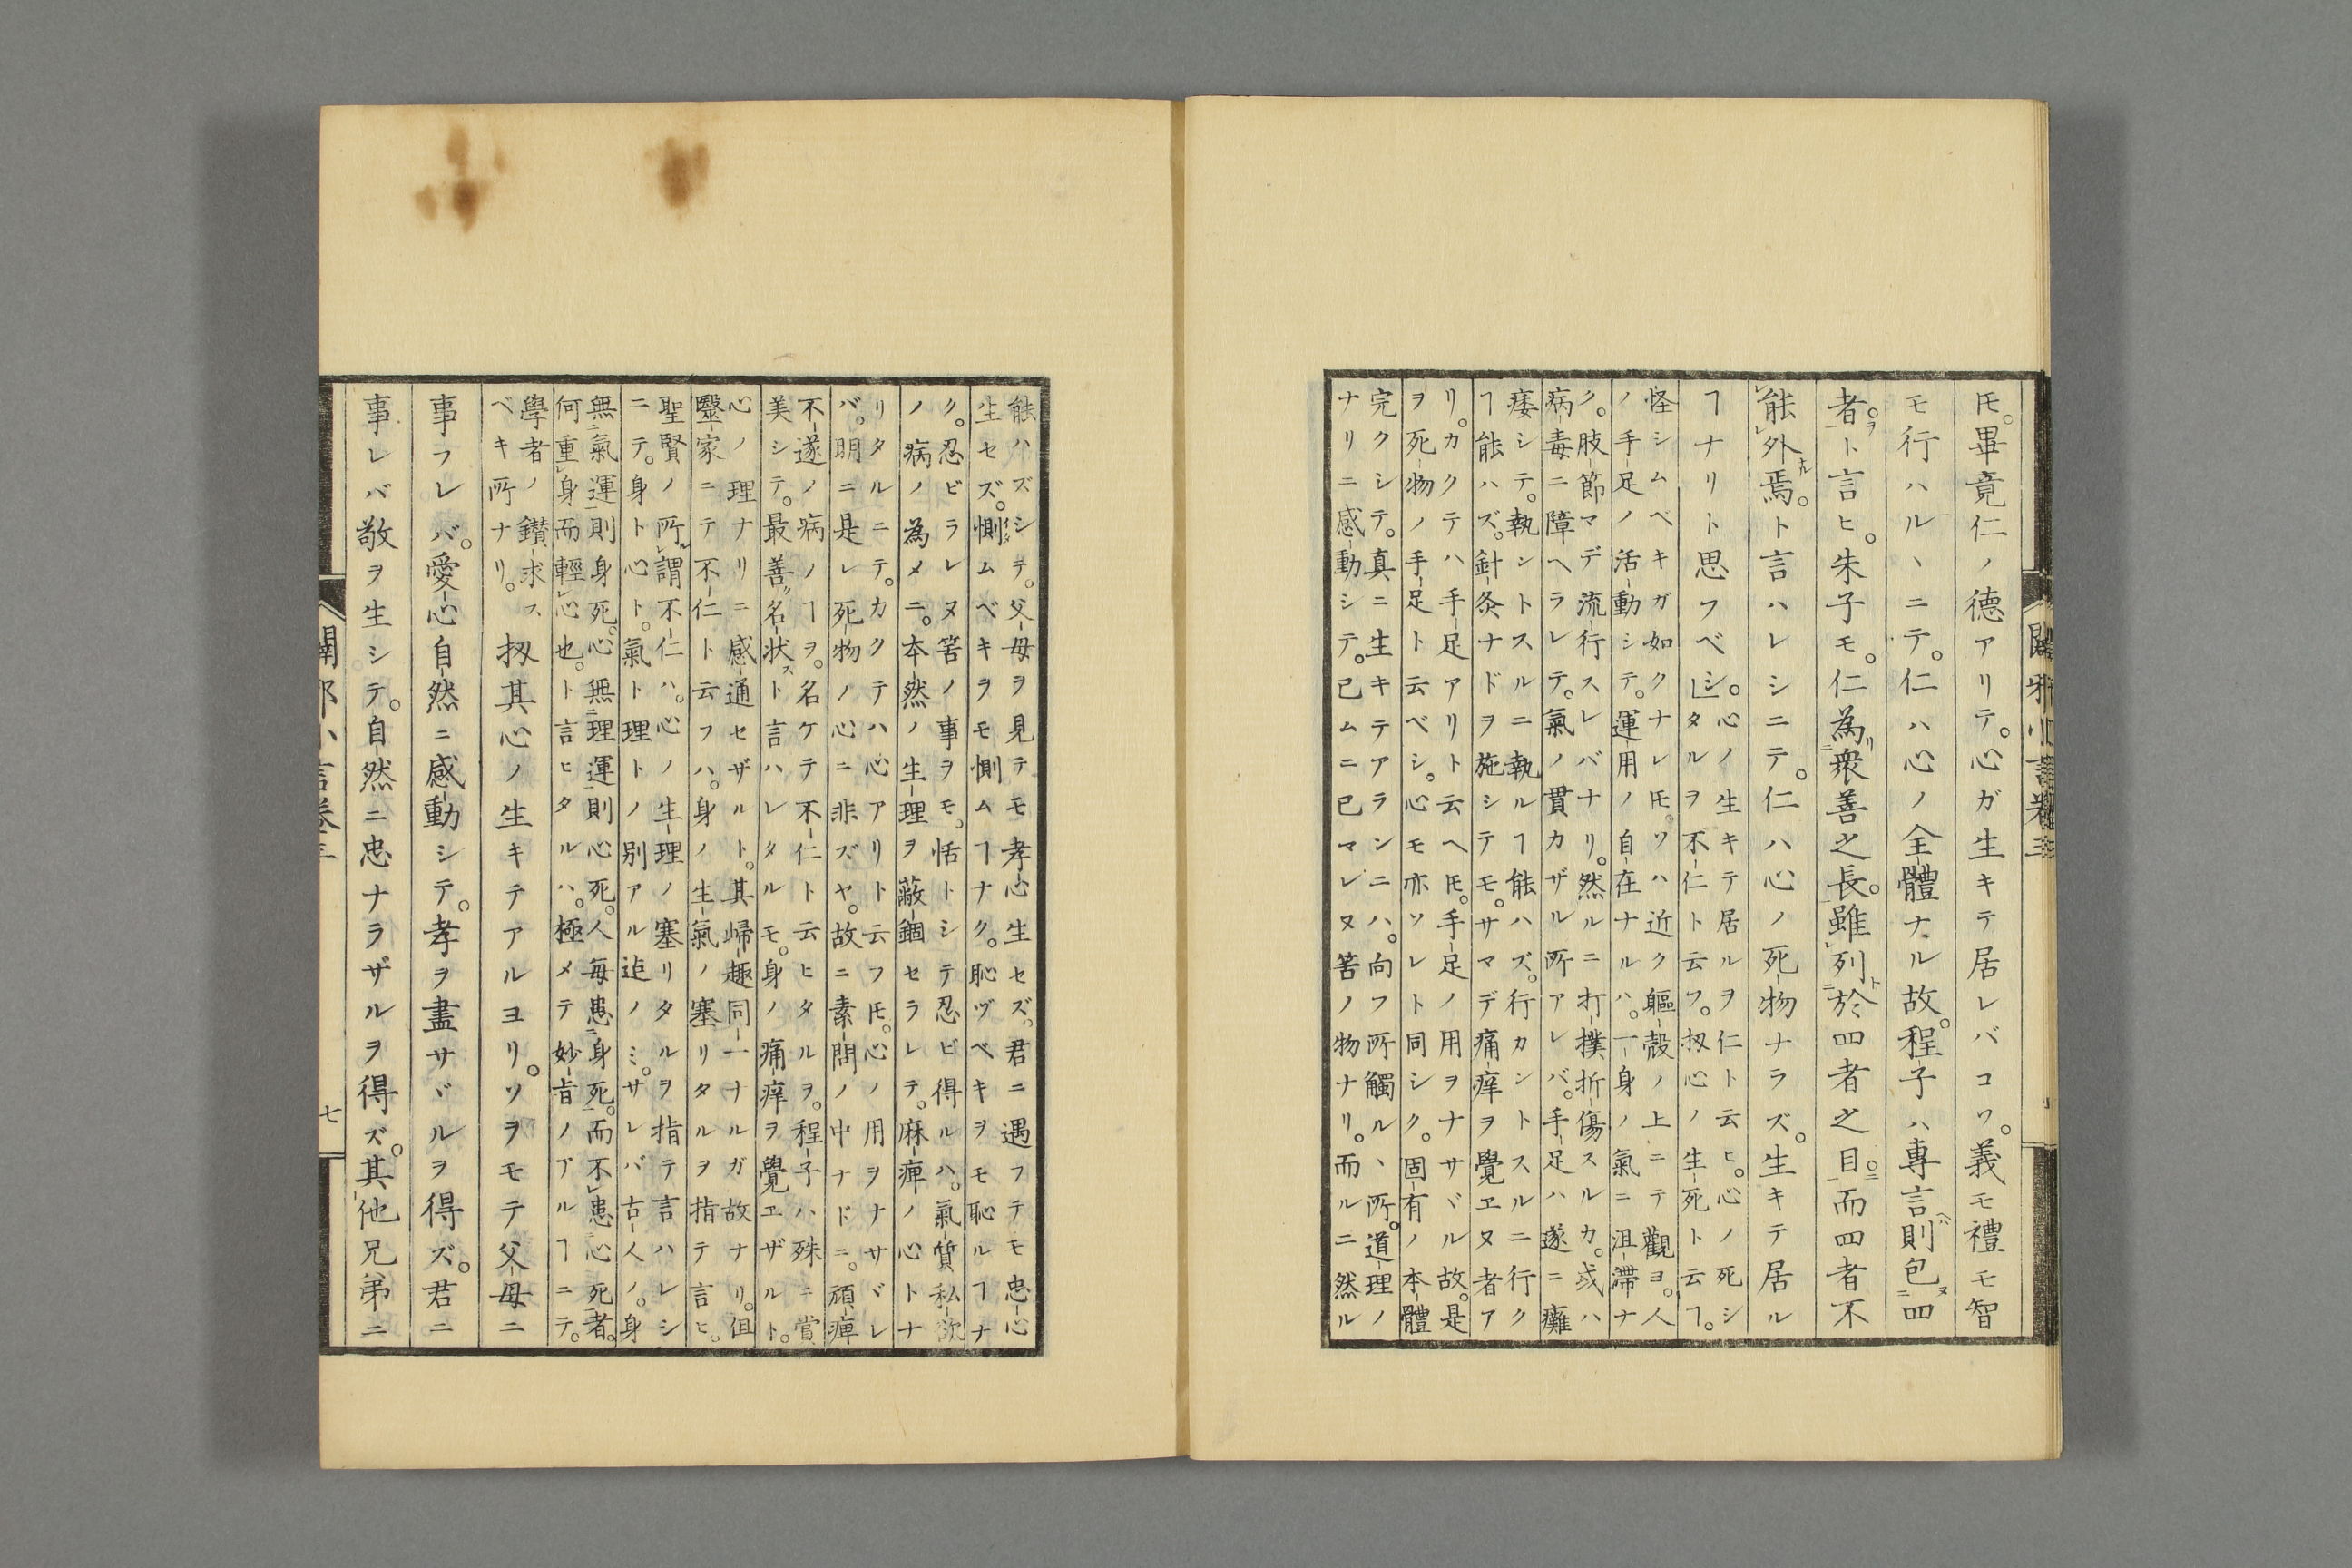 𪜈。畢竟仁ノ德アリテ。心ガ生キテ居レバコソ。義モ禮モ智
モ行ハルヽニテ。仁ハ心ノ全體ナル故。程子ハ專言則包四
者。ト言ヒ。朱子モ。仁為衆善之長。雖列於四者之目。而四者不
能外焉。ト言ハレシニテ。仁ハ心ノ死物ナラズ。生キテ居ル
ヿナリト思フベシ。
心ノ生キテ居ルヲ仁ト云ヒ。心ノ死シ
タルヲ不仁ト云フ。扨心ノ生死ト云ヿ。
怪シムベキガ如クナレ𪜈。ソハ近ク軀殼ノ上ニテ觀ヨ。人
ノ手足ノ活動シテ。運用ノ自在ナルハ。一身ノ氣ニ沮滯ナ
ク。肢節マデ流行スレバナリ。然ルニ打撲折傷スルカ。或ハ
病毒ニ障ヘラレテ。氣ノ貫カザル所アレバ。手足ハ遂ニ癱
痿シテ。執シトスルニ執ルヿ能ハズ。行カントスルニ行ク
ヿ能ハズ。針灸ナドヲ施シテモ。サマデ痛痒ヲ覺エヌ者ア
リ。カクテハ手足アリト云ヘ𪜈。手足ノ用ヲナサヾル故。是
ヲ死物ノ手足ト云ベシ。心モ亦ソレト同シク。固有ノ本體
完クシテ。真ニ生キテアランニハ。向フ所觸ルヽ所。道理ノ
ナリニ感動シテ。已ムニ已マレヌ筈ノ物ナリ。而ルニ然ル
闢邪小言卷三
能ハズシテ。父母ヲ見テモ孝心生セズ。君ニ遇フテモ忠心
生セズ。惻ムベキヲモ惻ムヿナク。恥ヅベキヲモ恥ルヿナ
ク。忍ビラレヌ筈ノ事ヲモ。恬トシテ忍ビ得ルハ。氣質私欲
ノ病ノ為メニ。本然ノ生理ヲ蔽錮セラレテ。麻痺ノ心トナ
リタルニテ。カクテハ心アリト云フ𪜈。心ノ用ヲナサバレ
バ。明ニ是レ死物ノ心ニ非ズヤ。故ニ素問ノ中ナドニ。頑痺
不遂ノ病ノヿヲ。名ケテ不仁ト云ヒタルヲ。程子ハ殊ニ賞
美シテ。最善名狀ト言ハレタルモ。身ノ痛痒ヲ覺エザルト。
心ノ理ナリニ感通セザルト。其歸趣同一ナルガ故ナリ。但
醫家ニテ不仁ト云フハ。身ノ生氣ノ塞リタルヲ指テ言ヒ。
聖賢ノ所謂不仁ハ。心ノ生理ノ塞リタルヲ指テ言ハレシ
ニテ。身ト心ト。氣ト理トノ別アル迠ノミ。サレバ古人ノ。身
無氣運則身死。心無理運則心死。人毎患身死。而不患心死者。
何重身而輕心也。ト言ヒタルハ。極メテ妙旨ノアルヿニテ。
學者ノ鑚求ス
ベキ所ナリ。
扨其心ノ生キテアルヨリ。ソヲモテ父母ニ
事フレバ。愛心自然ニ感動シテ。孝ヲ盡サヾルヲ得ズ。君ニ
事レバ敬ヲ生シテ。自然ニ忠ナラザルヲ得ズ。其他兄弟ニ
闢邪小言卷三
七